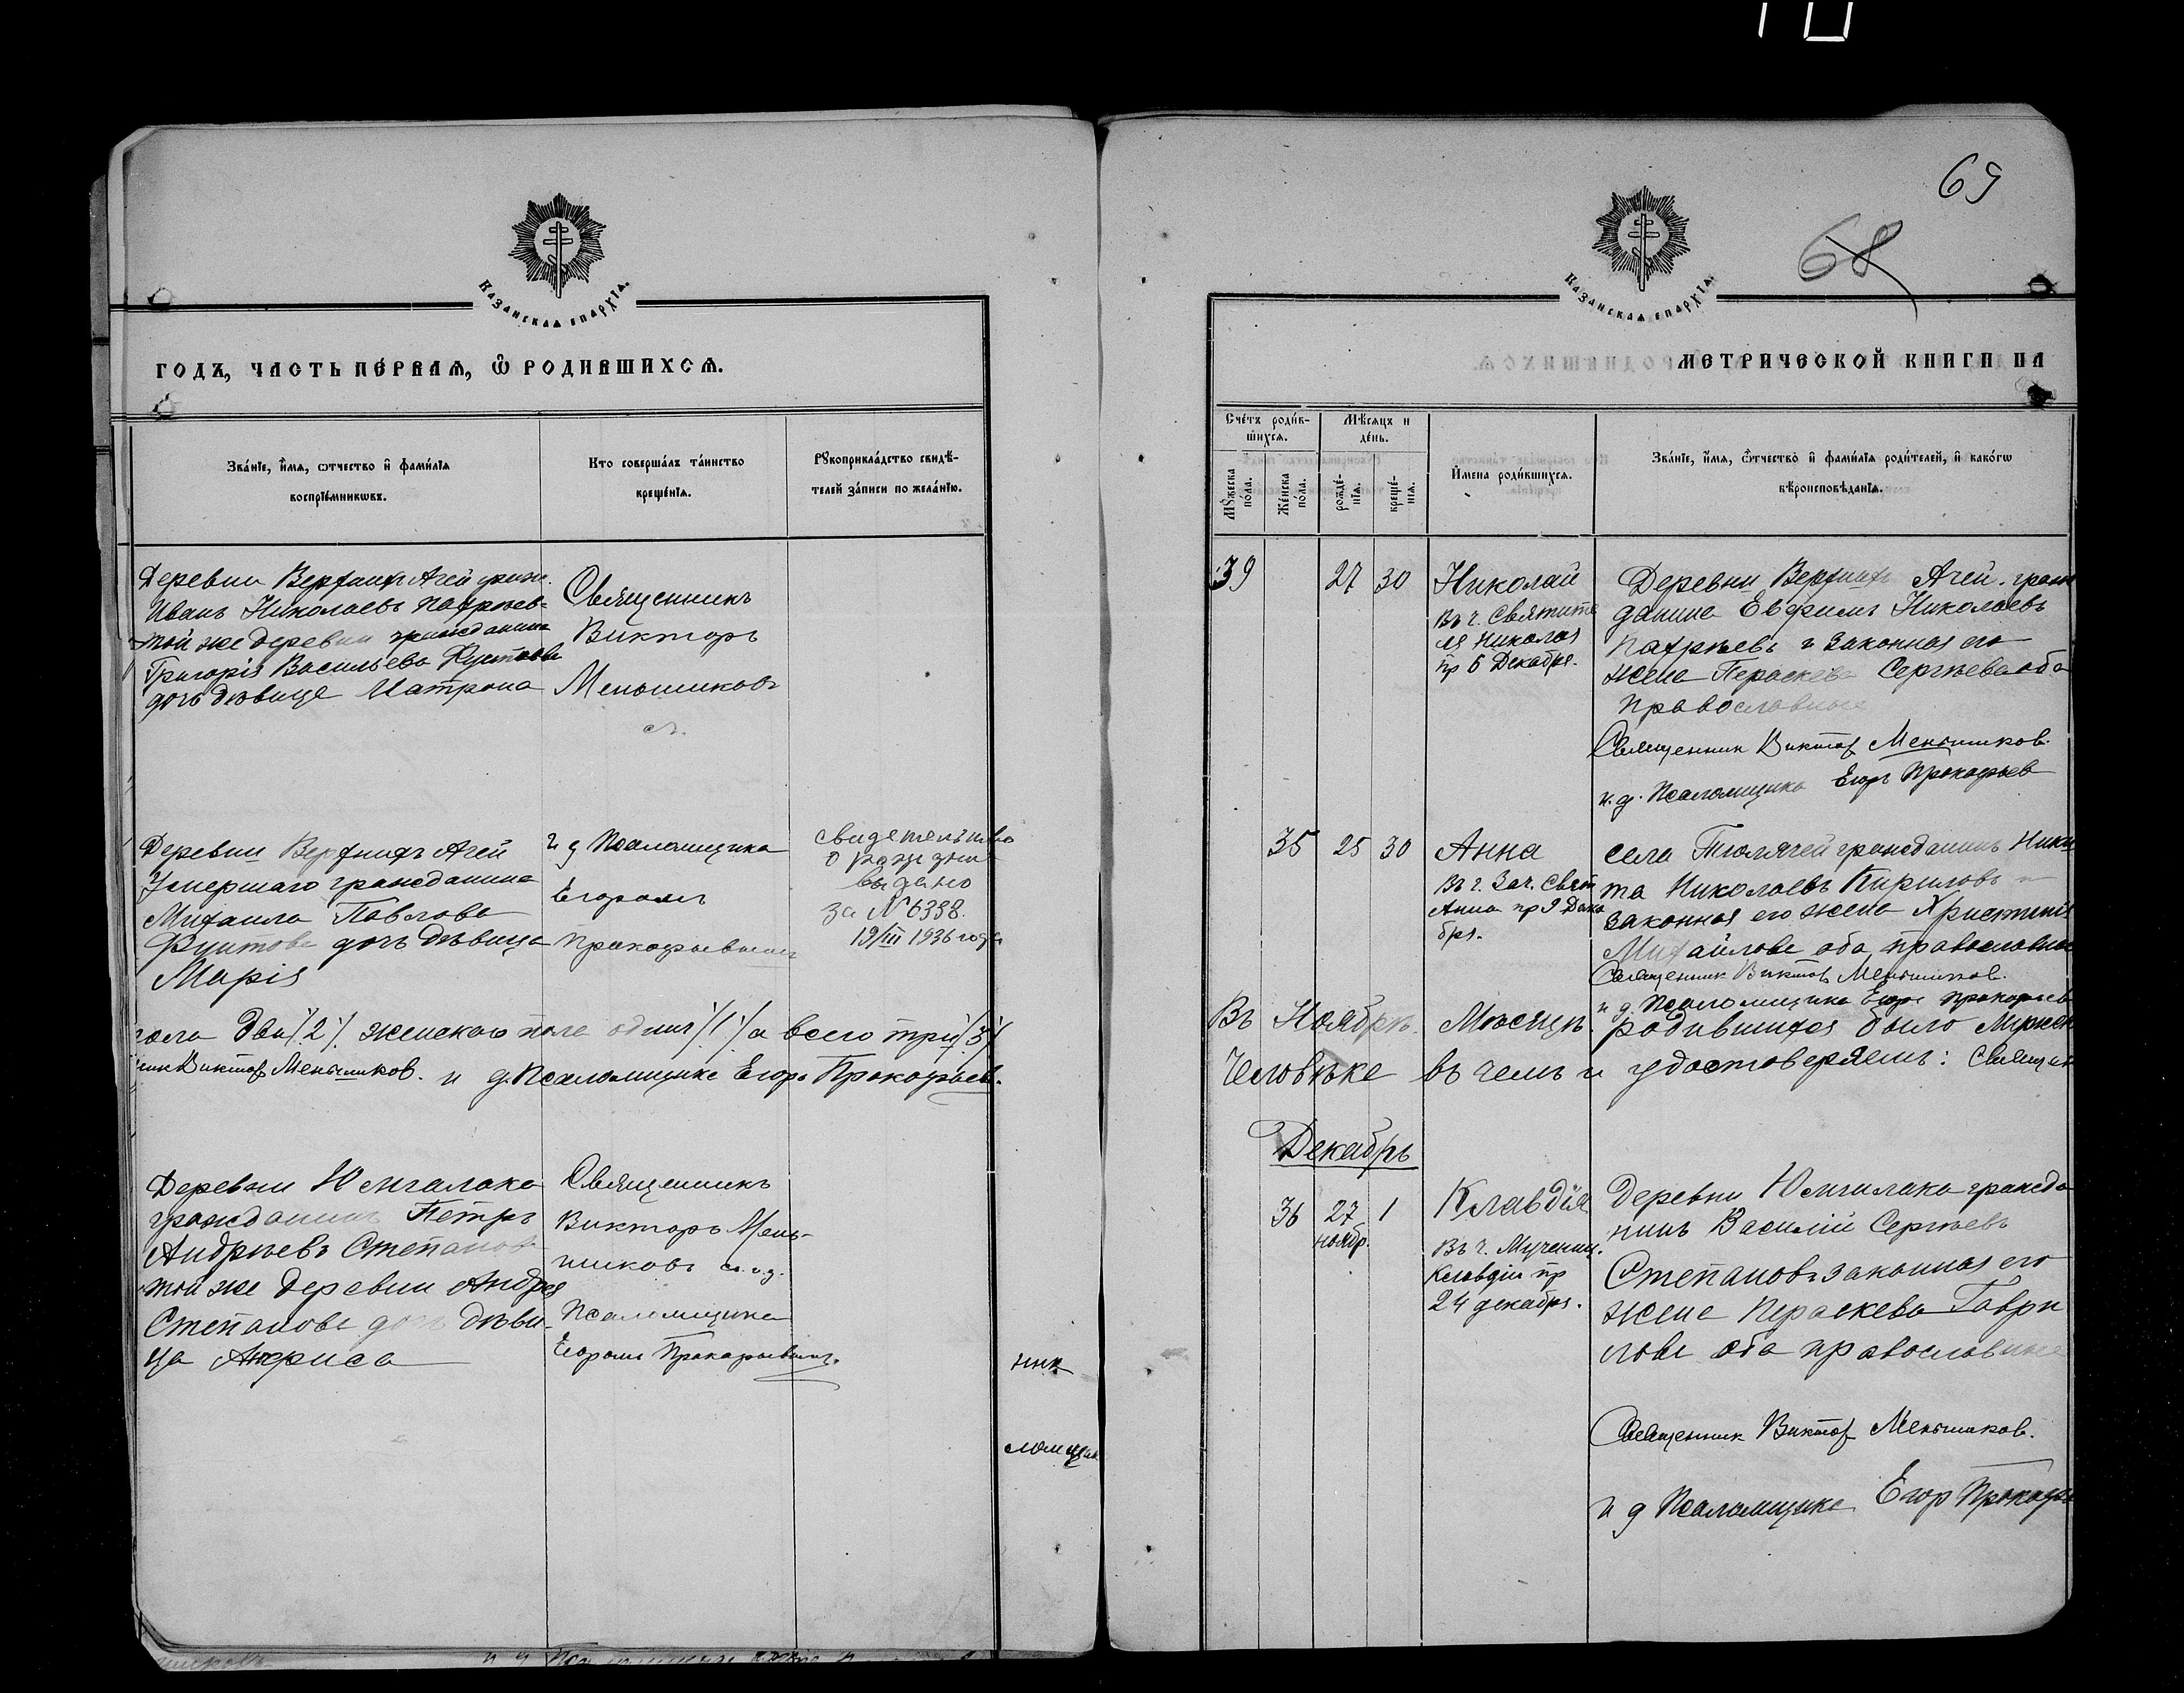 69
68
КАЗАНСКАѦ ЕПАРХІѦ.
ГОДЪ, ЧАСТЬ ПЕ́РВАѦ, Ѡ҆ РОДИВШИХСѦ.
Зва́нїе, и҆́мѧ, ѻтчество и҆ фами́лїѧ
воспрїе́мникѡвъ.
Кто соверша́лъ та́инство
креще́нїѧ.
Рꙋкоприкла́дство свидѣ́-
телей за́писи по жела́нїю.
Деревни Верхнихъ Ачей гражд.
Иванъ Николаевъ Патрѣев-
той же деревни гражданина
Григорія Васильева
дочь дѣвица Матрона
Священникъ
Викторъ
Меньшиковъ
Деревни Верхнихъ Ачей
Умершаго гражданина
Михаила Павлова
дочь дѣвица
Марія
И д Псаломщика
Егоромъ
Прокофьевымъ
свидетельство
о рождении
выдано
за № 6338.
19/III 1936 года
пола два /2/ женскаго пола один /1/ а всего три /3/
ник Виктор Меньшиков. и д. Псаломщика Егоръ Прокофьев.
Деревни Юнгалака
гражданинъ Петръ
Андрѣевъ Степанов
той же деревни Андрея
Степанова дочь дѣви-
ца
Священникъ
Викторъ Мень-
шиковъ с и.д.
Псаломщика
Егоромъ Прокофьевымъ.
ник
ломщик
КАЗАНСКАѦ ЕПАРХІѦ.
МЕТРИЧЕСКОЙ КНИГИ НА
Сче́тъ роди́в-
шихсѧ.
Мꙋ́жеска по́ла.
Же́нска по́ла.
Мѣ́сѧцъ и
де́нь.
рожде́-
нїѧ.
креще́-
нїѧ.
И҆мена роди́вшихсѧ.
Зва́нїе, и҆́мѧ, ѻ҆́тчество и҆ фами́лїѧ роди́телей, и҆ како́гѡ
вѣроисповѣ́данїѧ.
39 27 30 Николай
Въ ч. Святите
ля Николая
пр 6 Декабря.
Деревни Верхнихъ Ачей граж
данина Евфимъ Николаевъ
Патрѣевъ и законная его
жена Параскева Сергѣева оба
православные
Священник Виктор Меньшиков.
и. д. Псаломщика Егоръ Прокофьев
35 25 30 Анна
Въ ч. Зач. Свят
Анна пр 9 Дека
бря.
села Тюлячей гражданинъ Ники
та Николаевъ Кириловъ и
законная его жена Христинія
Михайлова оба православные
Священник Виктор Меньшиков.
и д. Псаломщика Егоръ Прокофьев
Въ Ноябрѣ Мѣсяцѣ родившихся было Мужск
Человѣка въ чемъ и удостоверяемъ: Священ
Декабрь
36 27 1 Клавдія
ноябр.
Въ ч. Мучениц.
Клавдіи пр
24 декабря.
Деревни Юнгилака гражда
нинъ Василій Сергѣевъ
Степановъ законная его
жена Параскева Гаври
лова оба православные
Священник Виктор Меньшиков.
и д Псаломщика Егор Прокофь